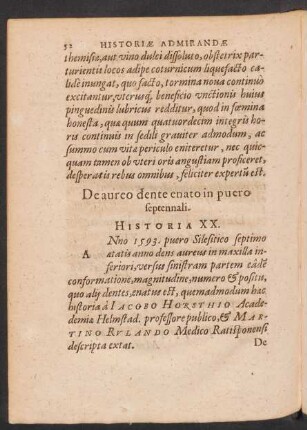 52 HISTORIÆ ADMIRANDÆ
themisiæ, aut vino dulci dissoluto, obstetrix par-
turientis locos adipe coturnicum liquefacto ca-
lide inungat, quo facto, tormina noua continuo
excitantur, vterusq́; beneficio vnctionis huius
pinguedinis lubricus redditur, quod in fœmina
honesta, quæ quum quatuordecim integris ho-
ris continuis in sedili grauiter admodum, ac
summo cum vitæ periculo eniteretur, nec quic-
quam tamen ob vteri oris angustiam proficeret,
desperatis rebus omnibus, feliciter expertũ est.
De aureo dente enato in puero
septennali.
HISTORIA XX.
ANno 1593. puero Silesitico septimo
ætatis anno dens aureus in maxilla in-
feriori, versus sinistram partem eâdẽ
conformatione, magnitudine, numero & positu,
quo alij dentes, enatus est, quemadmodum hæc
historia à IACOBO HORSTHIO Acade-
demiæ Helmstad. professore publico, & MAR-
TINO RVLANDO Medico Ratisponensi
descripta extat.
De